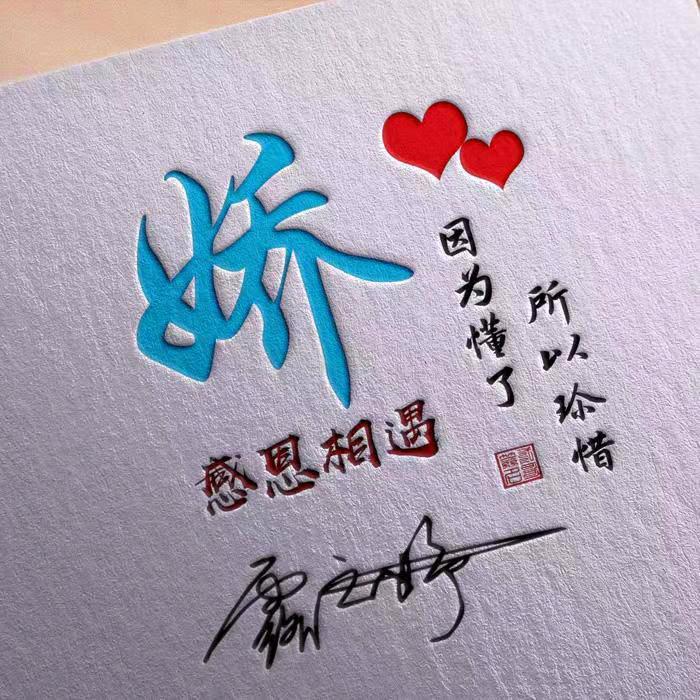 娇
因为懂了
所以珍惜
感恩相遇